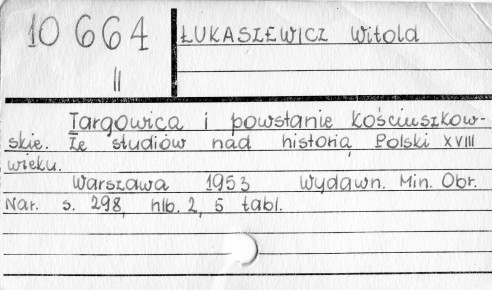 10 664
II
ŁUKASZEWICZ Witold
Targowica i powstanie Kościuszkow-
skie. Ze studiów nad historią Polski XVIII
wieku.
Warszawa 1953 Wydawn. Min. Obr.
Nar. s. 298, nlb. 2, 5 tabl.